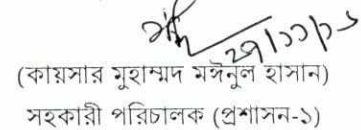 ২৭/১১/১৬
(কায়সার মুহাম্মদ মঈনুল হাসান)
সহকারী পরিচালক (প্রশাসন-১)